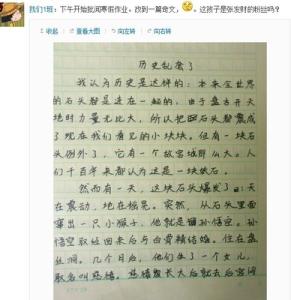 我们1班：下午开始批阅寒假作业。改到一篇奇文，。这孩子是张发财的粉丝吗？
收起 查看大图 向左转 向右转
历史乱套了
我认为历史是这样的：本来全世界
的石头都是连在一起的，由于盘古开天
地时力量无比大，所以把石头都震成
了现在我们看见的小块块。但有一块石
头例外了，它有一个故宫城那么大。人
们千百年来都认为这是一块破石。
然而有一天，这块石头爆发了：天
在震动，地在摇晃。突然，从石头里面
窜出一只小猴子，他就是孙悟空。孙
悟空取经回来后与白骨精结婚。住在盘
丝洞。几个月后，他们生了一个女儿，
取名叫慈禧。慈禧长大后就去后宫河